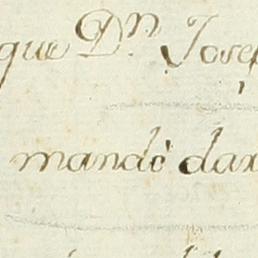 que Dⁿ Josep
mandò dar